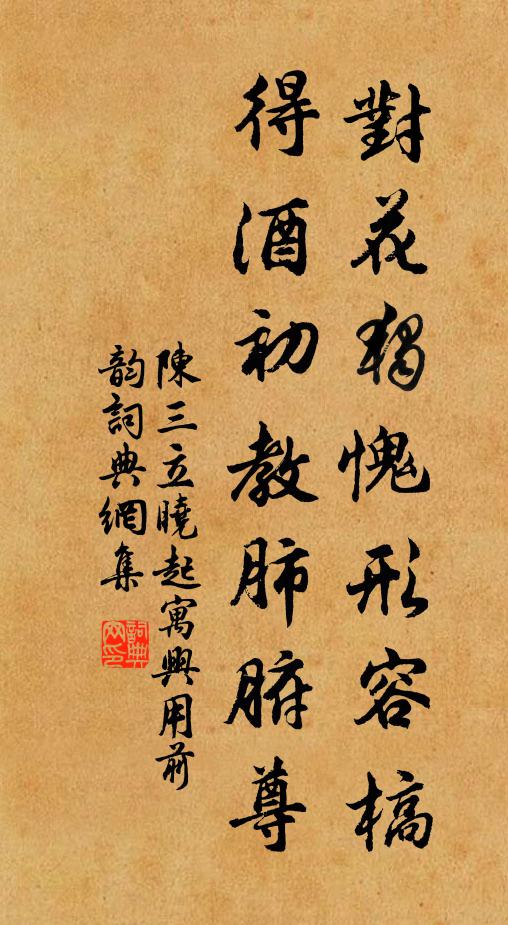 對花獨愧形容槁
得酒初教肺腑尊
陳三立曉起寓興用前
韵詞典網集
詞典网印